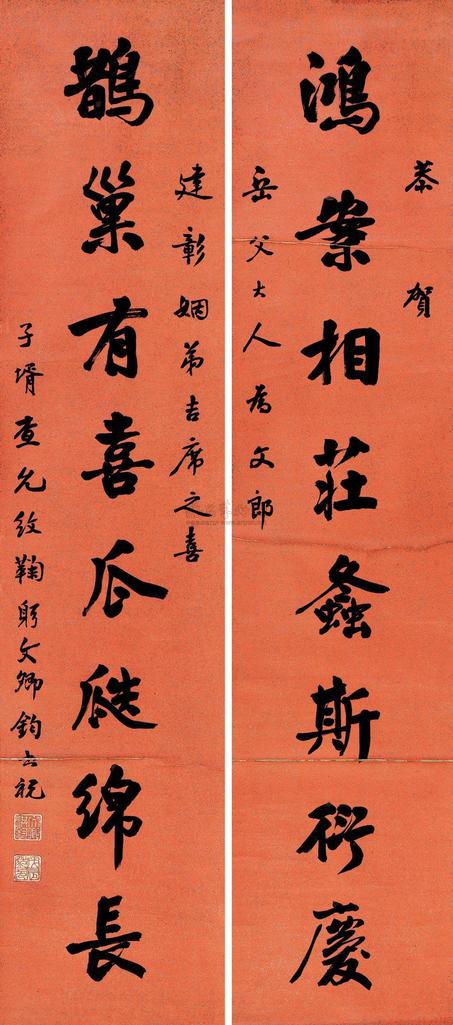 恭賀
鴻案相莊螽斯衍慶
岳父大人為文郎
建彰姻弟吉席之喜
鵲巢有喜瓜瓞綿長
子壻查允紋鞠躬文卿鈞祝